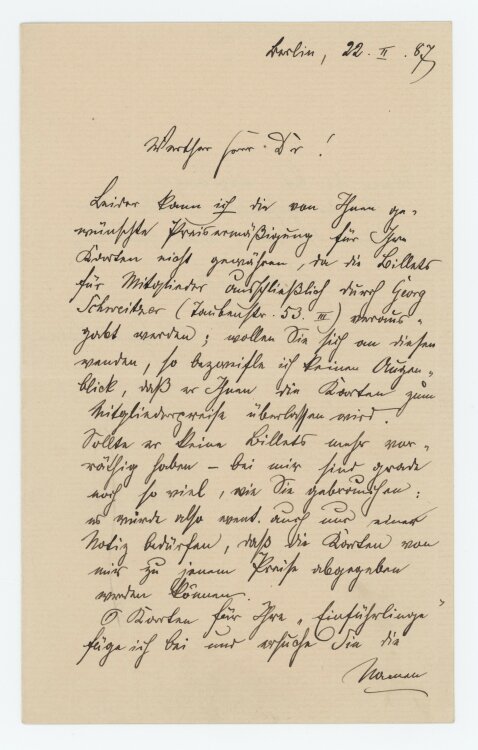 Berlin, 22. II. 87
Werther Herr Dr!
Leider kann ich die von Ihnen ge-
wünschte Preisermäßigung für Ihre
Karten nicht gewähren, da die Billets
für Mitglieder ausschließlich durch Georg
Schweitzer (Taubenstr. 53. III) veraus-
gabt werden; wollen Sie sich an diesen
wenden, so bezweifle ich keinen Augen-
blick, daß er Ihnen die Karten zum
Mitgliederpreise überlassen wird.
Sollte er keine Billets mehr vor-
räthig haben – bei mir sind grade
noch so viel, wie Sie gebrauchen:
es würde also event. auch nur einer
Notiz bedürfen, daß die Karten von
mir zu jenem Preise abgegeben
werden können.
Karten für Ihre „Einführlinge"
füge ich bei und ersuche Sie die
Namen